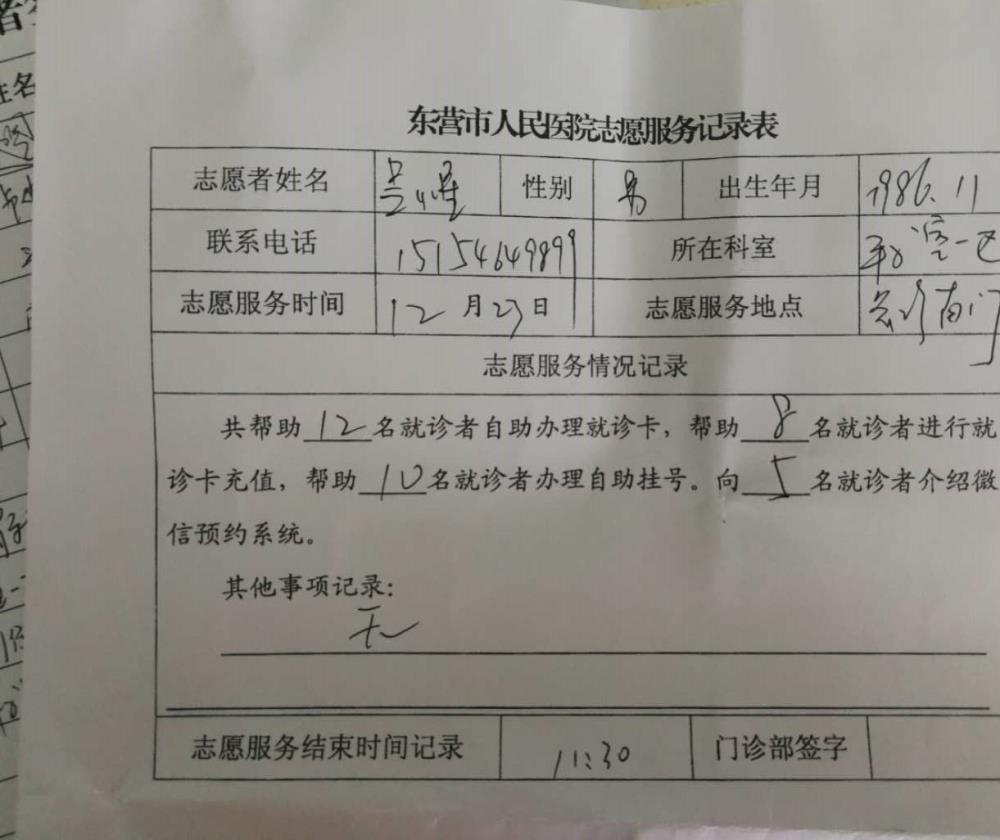 东营市人民医院志愿服务记录表
志愿者姓名 性别 男 出生年月 1986.11
联系电话 15154649899 所在科室
志愿服务时间 12月23日 志愿服务地点 门诊南门
志愿服务情况记录
共帮助12名就诊者自助办理就诊卡，帮助8名就诊者进行就
诊卡充值，帮助10名就诊者办理自助挂号。向5名就诊者介绍微
信预约系统。
其他事项记录：
无
志愿服务结束时间记录 11:30 门诊部签字